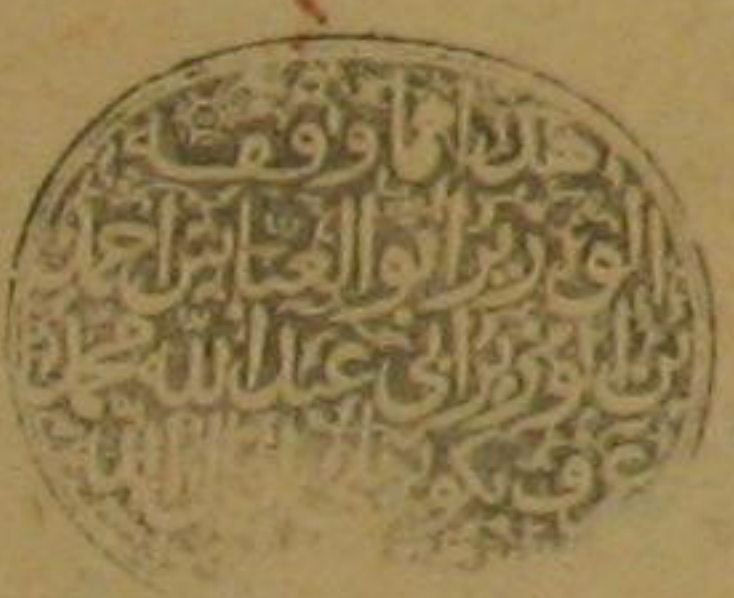 هذا ما وقفه
الوزير ابو العباس احمد
بن الوزير ابي عبد الله محمد
عرف الله